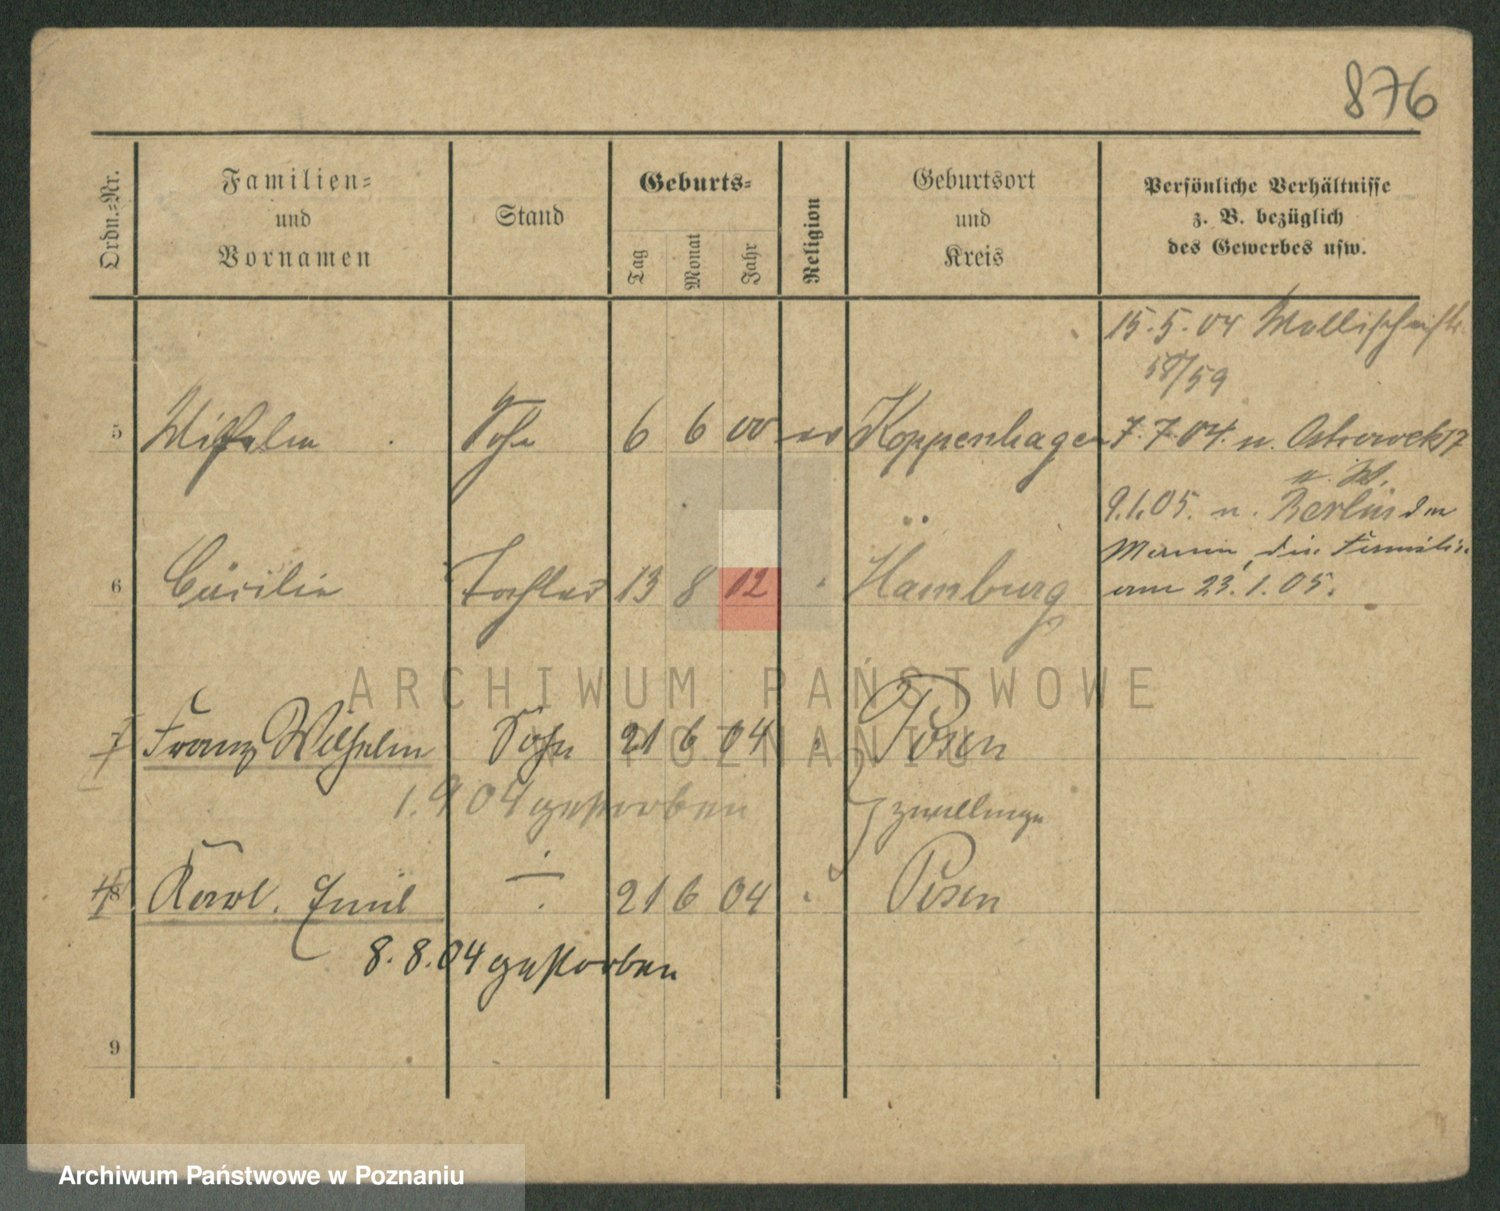 876
Ordn.-Nr.
Familien-
und
Vornamen
Stand
Geburts-
Tag
Monat
Jahr
Religion
Geburtsort
und
Kreis
Persönliche Verhältnisse
z. B. bezüglich
des Gewerbes usw.
15.5.04
58/59
5 Wilhelm Sohn 6 6 00 ev Koppenhagen 7.7.04. n. Ostrowek 17
n. W.
9.1.05. n. Berlin der
6 Cäcilie Tochter 13 8 12 Hamburg
Mann, die Familie
am 23.1.05.
7 Franz Wilhelm Sohn 21 6 04 Posen
1.9 04 gestorben
Zwillinge
8 Karl. Emil 21 6 04 Posen
8.8.04 gestorben
9
ARCHIWUM PAŃSTWOWE
W POZNANIU
Archiwum Państwowe w Poznaniu